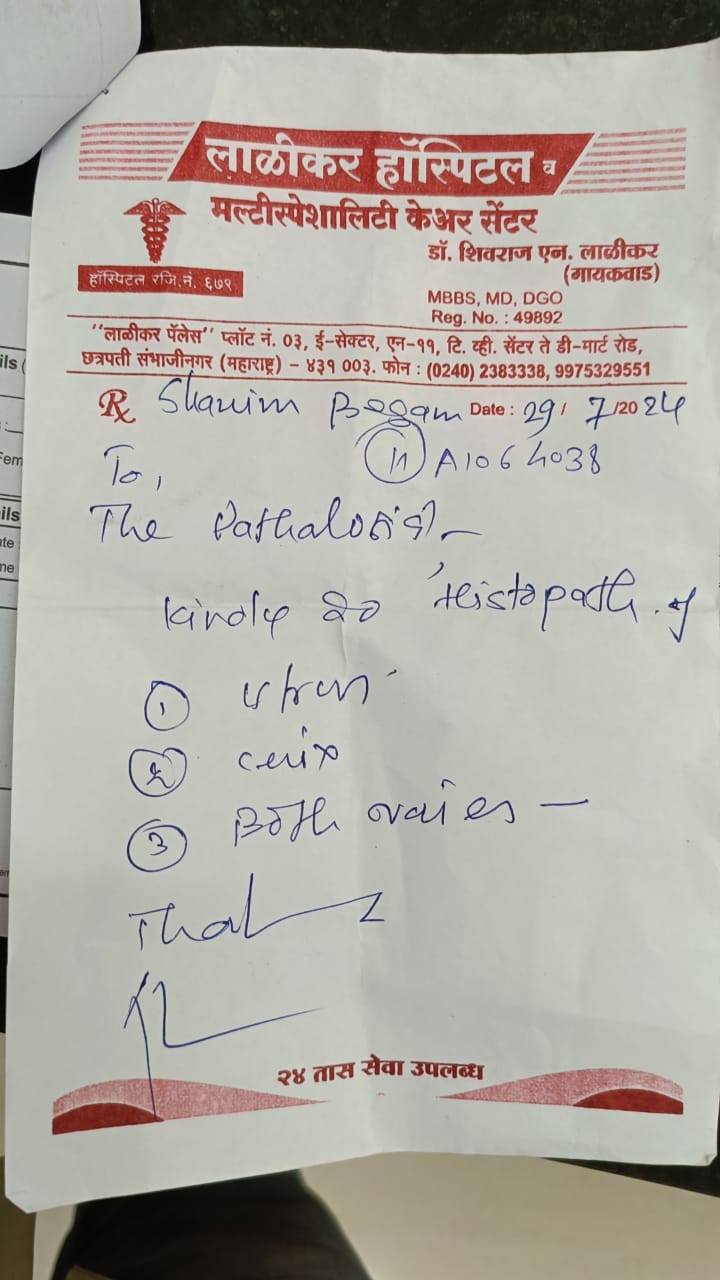 लाळीकर हॉस्पिटल व
मल्टीस्पेशालिटी केअर सेंटर
डॉ. शिवराज एन. लाळीकर
(गायकवाड)
हॉस्पिटल रजि.नं. ६७९
MBBS, MD, DGO
Reg. No. : 49892
"लाळीकर पॅलेस" प्लॉट नं. ०३, ई-सेक्टर, एन-११, टि. व्ही. सेंटर ते डी-मार्ट रोड,
छत्रपती संभाजीनगर (महाराष्ट्र) – ४३१ 003. फोन : (0240) 2383338, 9975329551
Rx Shamim Begam Date : 29/ 7/2024
To, (11) A1064038
The Pathalogist –
Kindly do Histopath. of
(1) Utrus
(2) cerix
(3) Both ovaries –
२४ तास सेवा उपलब्ध
ils
Fem
ils
ate
me